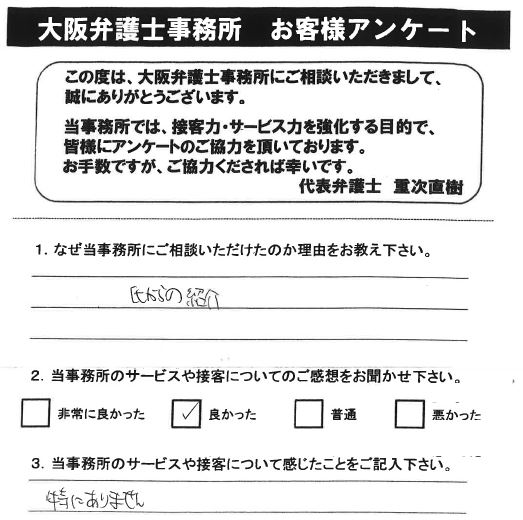 大阪弁護士事務所　お客様アンケート
この度は、大阪弁護士事務所にご相談いただきまして、
誠にありがとうございます。
当事務所では、接客力・サービス力を強化する目的で、
皆様にアンケートのご協力を頂いております。
お手数ですが、ご協力くだされば幸いです。
代表弁護士　重次直樹
1．なぜ当事務所にご相談いただけたのか理由をお教え下さい。
氏からの紹介
2．当事務所のサービスや接客についてのご感想をお聞かせ下さい。
非常に良かった　✓ 良かった　普通　悪かった
3．当事務所のサービスや接客について感じたことをご記入下さい。
特にありません